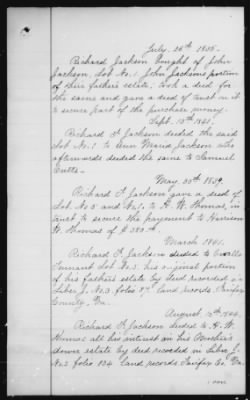 July. 26th 1838.
Richard Jackson bought of John
Jackson, Lot No. 1 John Jackson's portion
of their father's estate, took a deed for
the same and gave a deed of trust on it
to secure part of the purchase money.
Sept. 13th 1841.
Richard F. Jackson deeded the said
Lot No. 1 to Ann Maria Jackson who
afterwards deeded the same to Samuel
May. 30th 1839.
Richard F. Jackson gave a deed of
Lot No 3 and No. 1. to H. W. Thomas, in
trust to secure the payment to Harrison
W. Thomas of $
March 1841.
Richard F. Jackson deeded to
Tennant Lot No. 3. his original portion
of his father's estate by deed recorded in
Liber J. No. 3 folio land records Fairfax
County, Va.
August. 1844.
Richard F. Jackson deeded to H. W.
Thomas all his interest in his Mother's
dower estate by deed recorded in Liber J.
No 3 folio 134 land records Fairfax Co. Va.